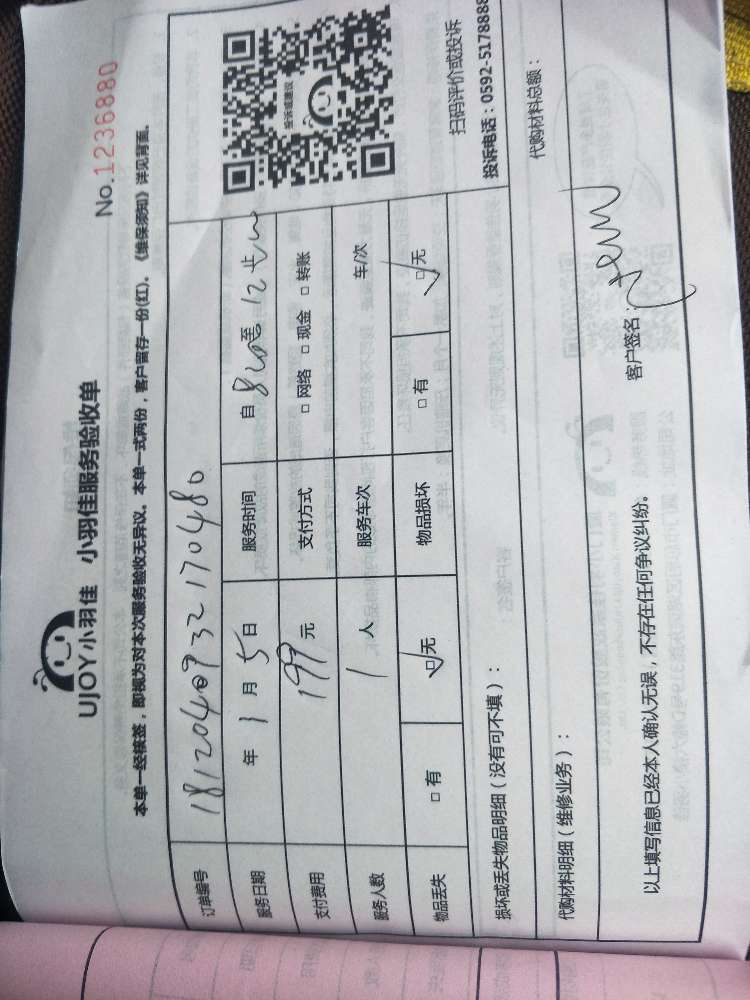 UJOY小羽佳 小羽佳服务验收单
No.1236880
本单一经核签，即视为对本次服务验收无异议。本单一式两份，客户留存一份(红)。《维保须知》详见背面。
订单编号 181204093217 0480
服务日期 年 1 月 5 日 服务时间 自 8:00 至 12
支付费用 199 元 支付方式 □ 网络 □ 现金 □ 转账
服务人数 1 人 服务车次 车/次
物品丢失 □ 有 □ 无 物品损坏 □ 有 □ 无
投诉或建议
扫码评价或投诉
投诉电话：0592-5178888
损坏或丢失物品明细（没有可不填）：
代购材料明细（维修业务）： 代购材料总额：
以上填写信息已经本人确认无误，不存在任何争议纠纷。
客户签名：